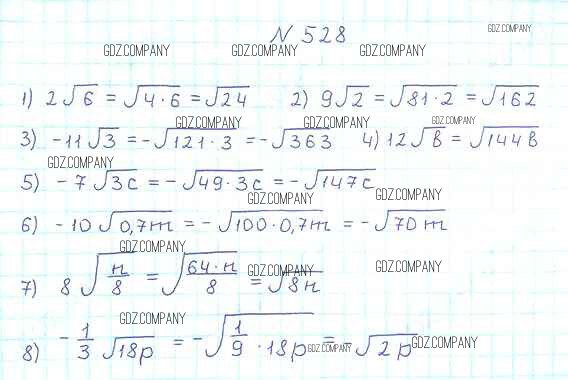 N 528
GDZ.COMPANY
GDZ.COMPANY GDZ.COMPANY GDZ.COMPANY
1) 2√6 = √4·6 = √24 2) 9√2 = √81·2 = √162
GDZ.COMPANY GDZ.COMPANY GDZ.COMPANY
3) -11√3 = -√121·3 = -√363 4) 12√b = √144b
GDZ.COMPANY
5) -7√3c = -√49·3c = -√147c
GDZ.COMPANY GDZ.COMPANY
6) -10√0,7m = -√100·0,7m = -√70m
GDZ.COMPANY
7) 8√n/8 = √64·n/8 = √8n
GDZ.COMPANY GDZ.COMPANY
GDZ.COMPANY
8) -1/3√18p = -√1/9·18p = -√2p
GDZ.COMPANY GDZ.COMPANY